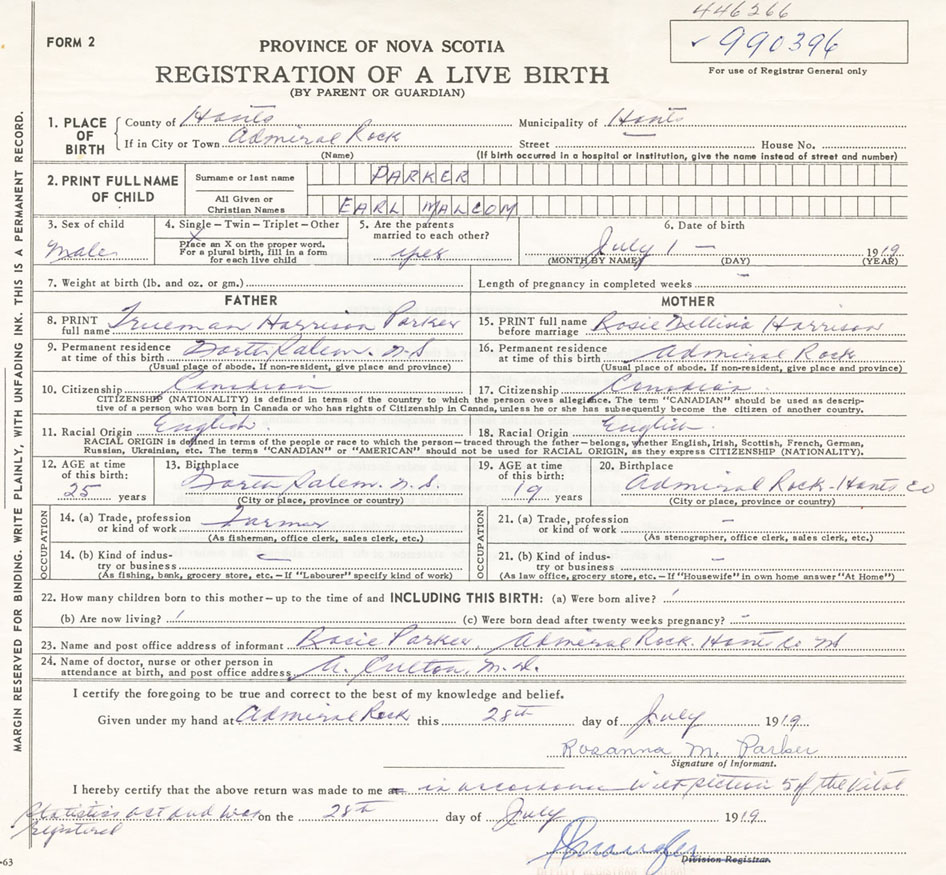 446266
FORM 2
✓ 990396
PROVINCE OF NOVA SCOTIA
REGISTRATION OF A LIVE BIRTH
(BY PARENT OR GUARDIAN)
For use of Registrar General only
1. PLACE OF BIRTH County of Hants Municipality of Hants
If in City or Town Admiral Rock Street House No.
(Name) (If birth occurred in a hospital or institution, give the name instead of street and number)
2. PRINT FULL NAME OF CHILD Surname or last name PARKER
All Given or Christian Names EARL MALCOM
3. Sex of child Male
4. Single – Twin – Triplet – Other
X
Place an X on the proper word. For a plural birth, fill in a form for each live child
5. Are the parents married to each other? yes
6. Date of birth July 1 – 1919
(MONTH BY NAME) (DAY) (YEAR)
7. Weight at birth (lb. and oz. or gm.) Length of pregnancy in completed weeks –
FATHER
MOTHER
8. PRINT full name Trueman Harrison Parker
15. PRINT full name before marriage Rosie Harrison
9. Permanent residence at time of this birth North Salem. N.S
(Usual place of abode. If non-resident, give place and province)
16. Permanent residence at time of this birth Admiral Rock
(Usual place of abode. If non-resident, give place and province)
10. Citizenship Canadian
17. Citizenship Canadian
CITIZENSHIP (NATIONALITY) is defined in terms of the country to which the person owes allegiance. The term "CANADIAN" should be used as descrip-
tive of a person who was born in Canada or who has rights of Citizenship in Canada, unless he or she has subsequently become the citizen of another country.
11. Racial Origin English
18. Racial Origin English
RACIAL ORIGIN is defined in terms of the people or race to which the person – traced through the father – belongs, whether English, Irish, Scottish, French, German,
Russian, Ukrainian, etc. The terms "CANADIAN" or "AMERICAN" should not be used for RACIAL ORIGIN, as they express CITIZENSHIP (NATIONALITY).
12. AGE at time of this birth: 25 years
13. Birthplace North Salem. N.S.
(City or place, province or country)
19. AGE at time of this birth: 19 years
20. Birthplace Admiral Rock - Hants Co
(City or place, province or country)
OCCUPATION
14. (a) Trade, profession or kind of work Farmer
(As fisherman, office clerk, sales clerk, etc.)
14. (b) Kind of indus-try or business –
(As fishing, bank, grocery store, etc. – If "Labourer" specify kind of work)
OCCUPATION
21. (a) Trade, profession or kind of work –
(As stenographer, office clerk, sales clerk, etc.)
21. (b) Kind of indus-try or business –
(As law office, grocery store, etc. – If "Housewife" in own home answer "At Home")
22. How many children born to this mother – up to the time of and INCLUDING THIS BIRTH: (a) Were born alive? 1
(b) Are now living? 1 (c) Were born dead after twenty weeks pregnancy? –
23. Name and post office address of informant Rosie Parker Admiral Rock. Hants Co NS
24. Name of doctor, nurse or other person in attendance at birth, and post office address A. Culton, M.D.
I certify the foregoing to be true and correct to the best of my knowledge and belief.
Given under my hand at Admiral Rock this 28th day of July 1919.
Rosanna M. Parker
Signature of Informant.
I hereby certify that the above return was made to me at in accordance with section 5 of the Vital
Statistics act and was registered on the 28th day of July 1919.
Division Registrar.
MARGIN RESERVED FOR BINDING. WRITE PLAINLY, WITH UNFADING INK. THIS IS A PERMANENT RECORD.
-63